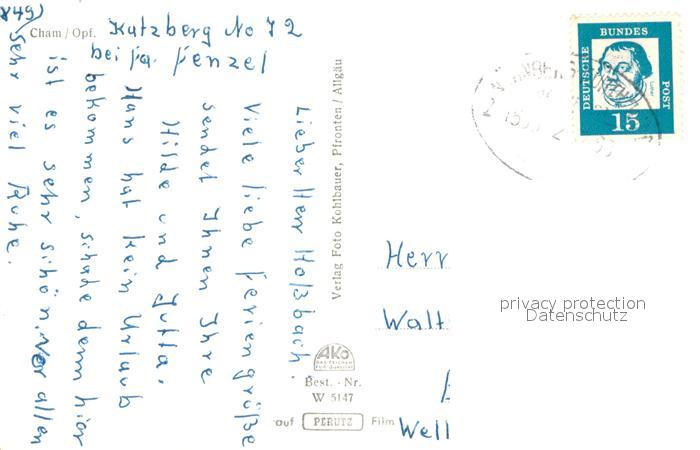 849)
Cham / Opf. Katzberg No 72
bei fa. Fenzel
Lieber Herr Hoßbach.
Viele liebe Feriengrüße
sendet Ihnen Ihre
Hilde und Jutta.
Hans hat kein Urlaub
bekommen, schade denn hier
ist es sehr schön. Vor allen
sehr viel Ruhe.
Verlag Foto Kohlbauer, Pfronten / Allgäu
AKO
Best. - Nr.
W 5147
auf PERUTZ Film
DEUTSCHE BUNDES POST
15
Herr
Walt
Well
privacy protection
Datenschutz